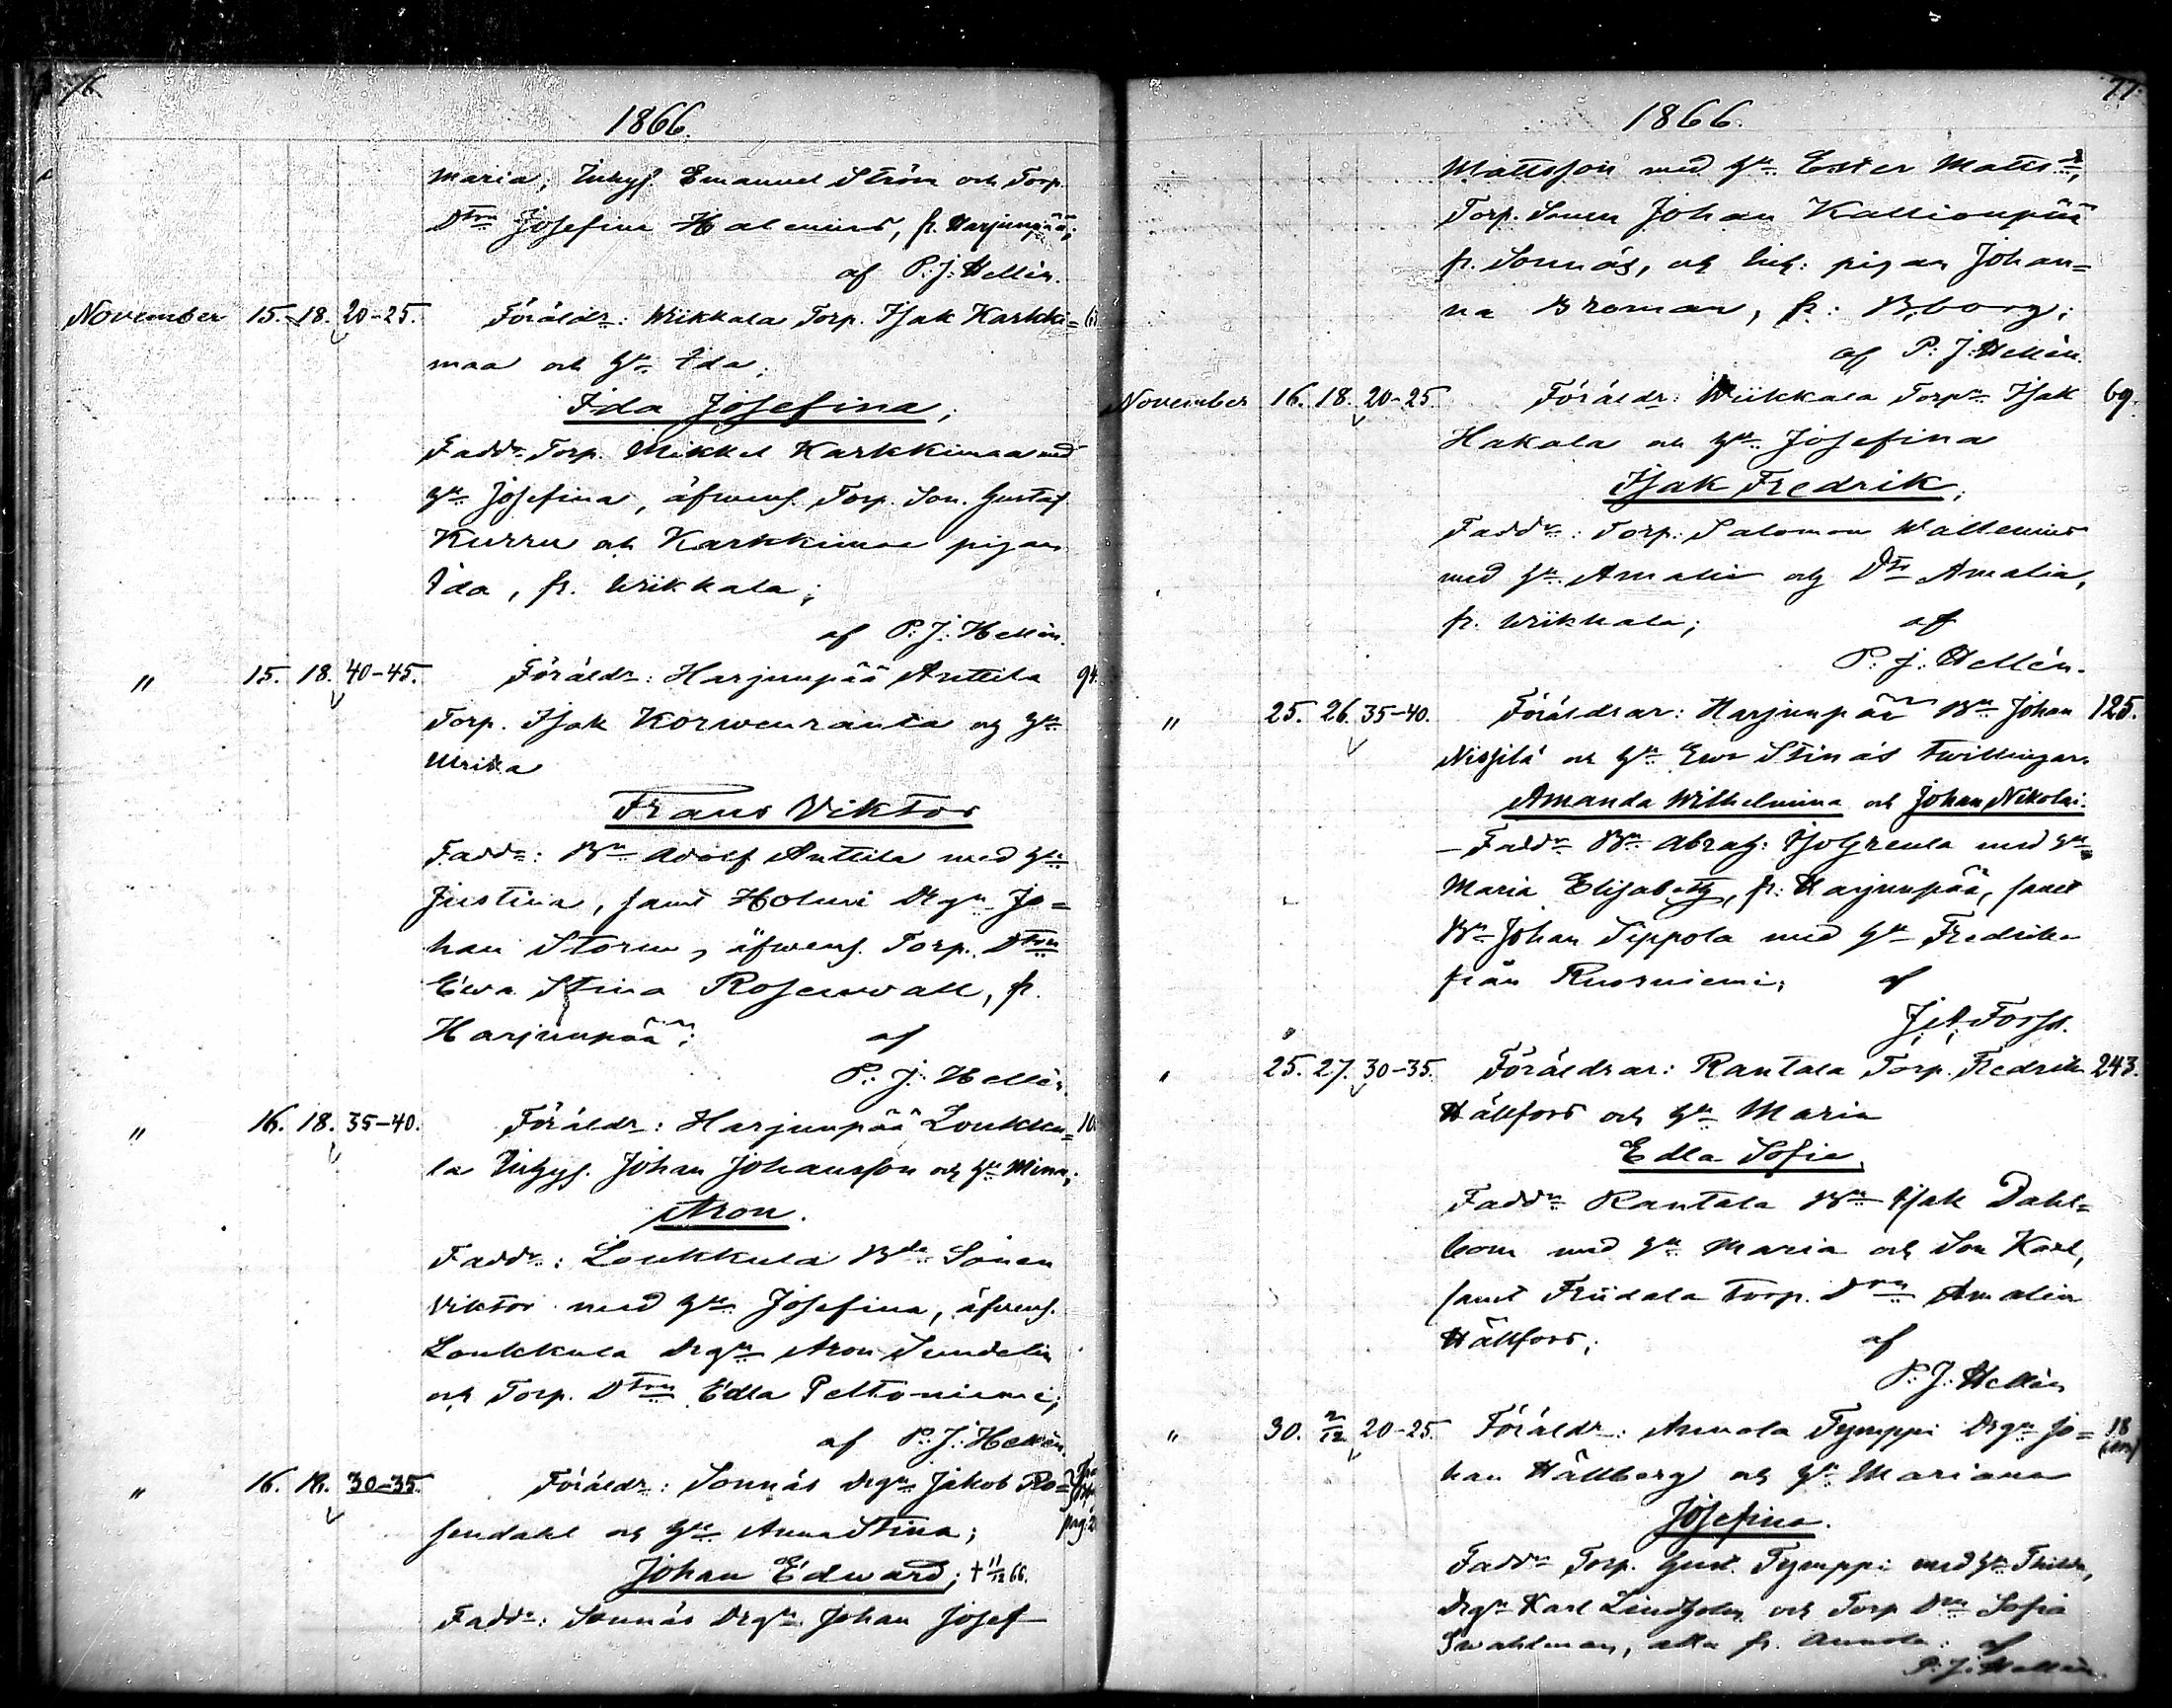 76
1866.
Maria, Inhys. Emanuel Ström och Torp.
Dtrn Josefina Halenius, fr. Harjunpää;
af P. J. Hellén.
November 15. 18. 20-25. Föräldr: Wiikkala Torp. Isak Karkki=
maa och Hu Ida;
Ida Josefina;
Faddr Torp. Mikkel Karkkimaa med
Hu Josefina, äfvens. Torp. Son. Gustaf
Kurru och Karkkimaa pigan
Ida, fr. Wiikkala;
af P. J. Hellén.
" 15. 18. 40-45. Föräldr: Harjunpää Anttila 94.
Torp. Isak Korwenranta och Hu
Ulrika
Frans Viktor
Faddr: Bn Adolf Anttila med Hu
Justina, samt Holmi Drgn Jo=
han Storm, äfvens. Torp. Dtrn
Ewa Stina Rosenvall, fr.
Harjunpää; af
P. J. Hellén.
" 16. 18. 35-40. Föräldr: Harjunpää Loukku=
la Inhys. Johan Johansson och Hu Mina;
Aron.
Faddr: Loukkula Bde Sonen
Viktor med Hu Josefina, äfvens.
Loukkula drgn Aron Sundelin
och Torp. Dtrn Edla Peltoniemi;
af P. J. Hellén.
" 16. 18. 30-35. Föräldr: Sonnäs drgn Jakob Ro=
sendahl och Hu Anna Stina;
Johan Edward; † 11/12 66.
Faddr: Sonnäs Drgn Johan Josef
77.
1866.
Mattsson med Hu Ester Matts dr,
Torp. Sonen Johan Kallionpää
fr. Sonnäs, och pigan Johan=
na Broman, fr: B,borg;
af P. J. Hellén.
November 16. 18. 20-25. Föräldr: Wiikkala Torpn Isak 69.
Hakala och Hu Josefina
Isak Fredrik;
Faddr: Torp. Salomon Wallenius
med Hu Amalia och Dtr Amalia,
fr. Wiikkala; af
P. J. Hellén.
" 25. 26. 35-40. Föräldrar: Harjunpää Bn Johan 125.
Nissilä och Hu Ewa Stinas twillingar.
Amanda Wilhelmina och Johan Nikolai.
- Faddr Bn Abrah: Isogreula med Hu
Maria Elisabeth, fr: Harjunpää, samt
Bn Johan Seppola med Hu Fredrika
från Ruosniemi; af
J. A. Forss.
" 25. 27. 30-35. Föräldrar: Rantala Torp. Fredrik 243.
Hällfors och Hu Maria
Edla Sofia.
Faddr Rantala Bn Isak Dahl=
bom med Hu Maria och Son Karl,
samt Friidala Torp. Dtrn Amalia
Hällfors; af
P. J. Hellén
" 30. 2/12 20-25. Föräldr: Annola Tymppi Drgn Jo= 18
han Hällberg och Hu Mariana
Josefina.
Faddr Torp. Gust. Tymppi med Hu Thilda,
Drgn Karl Lindholm och Torp Dtrn Sofia
Swahlman, alla fr. Annola: af
P. J. Hellén.